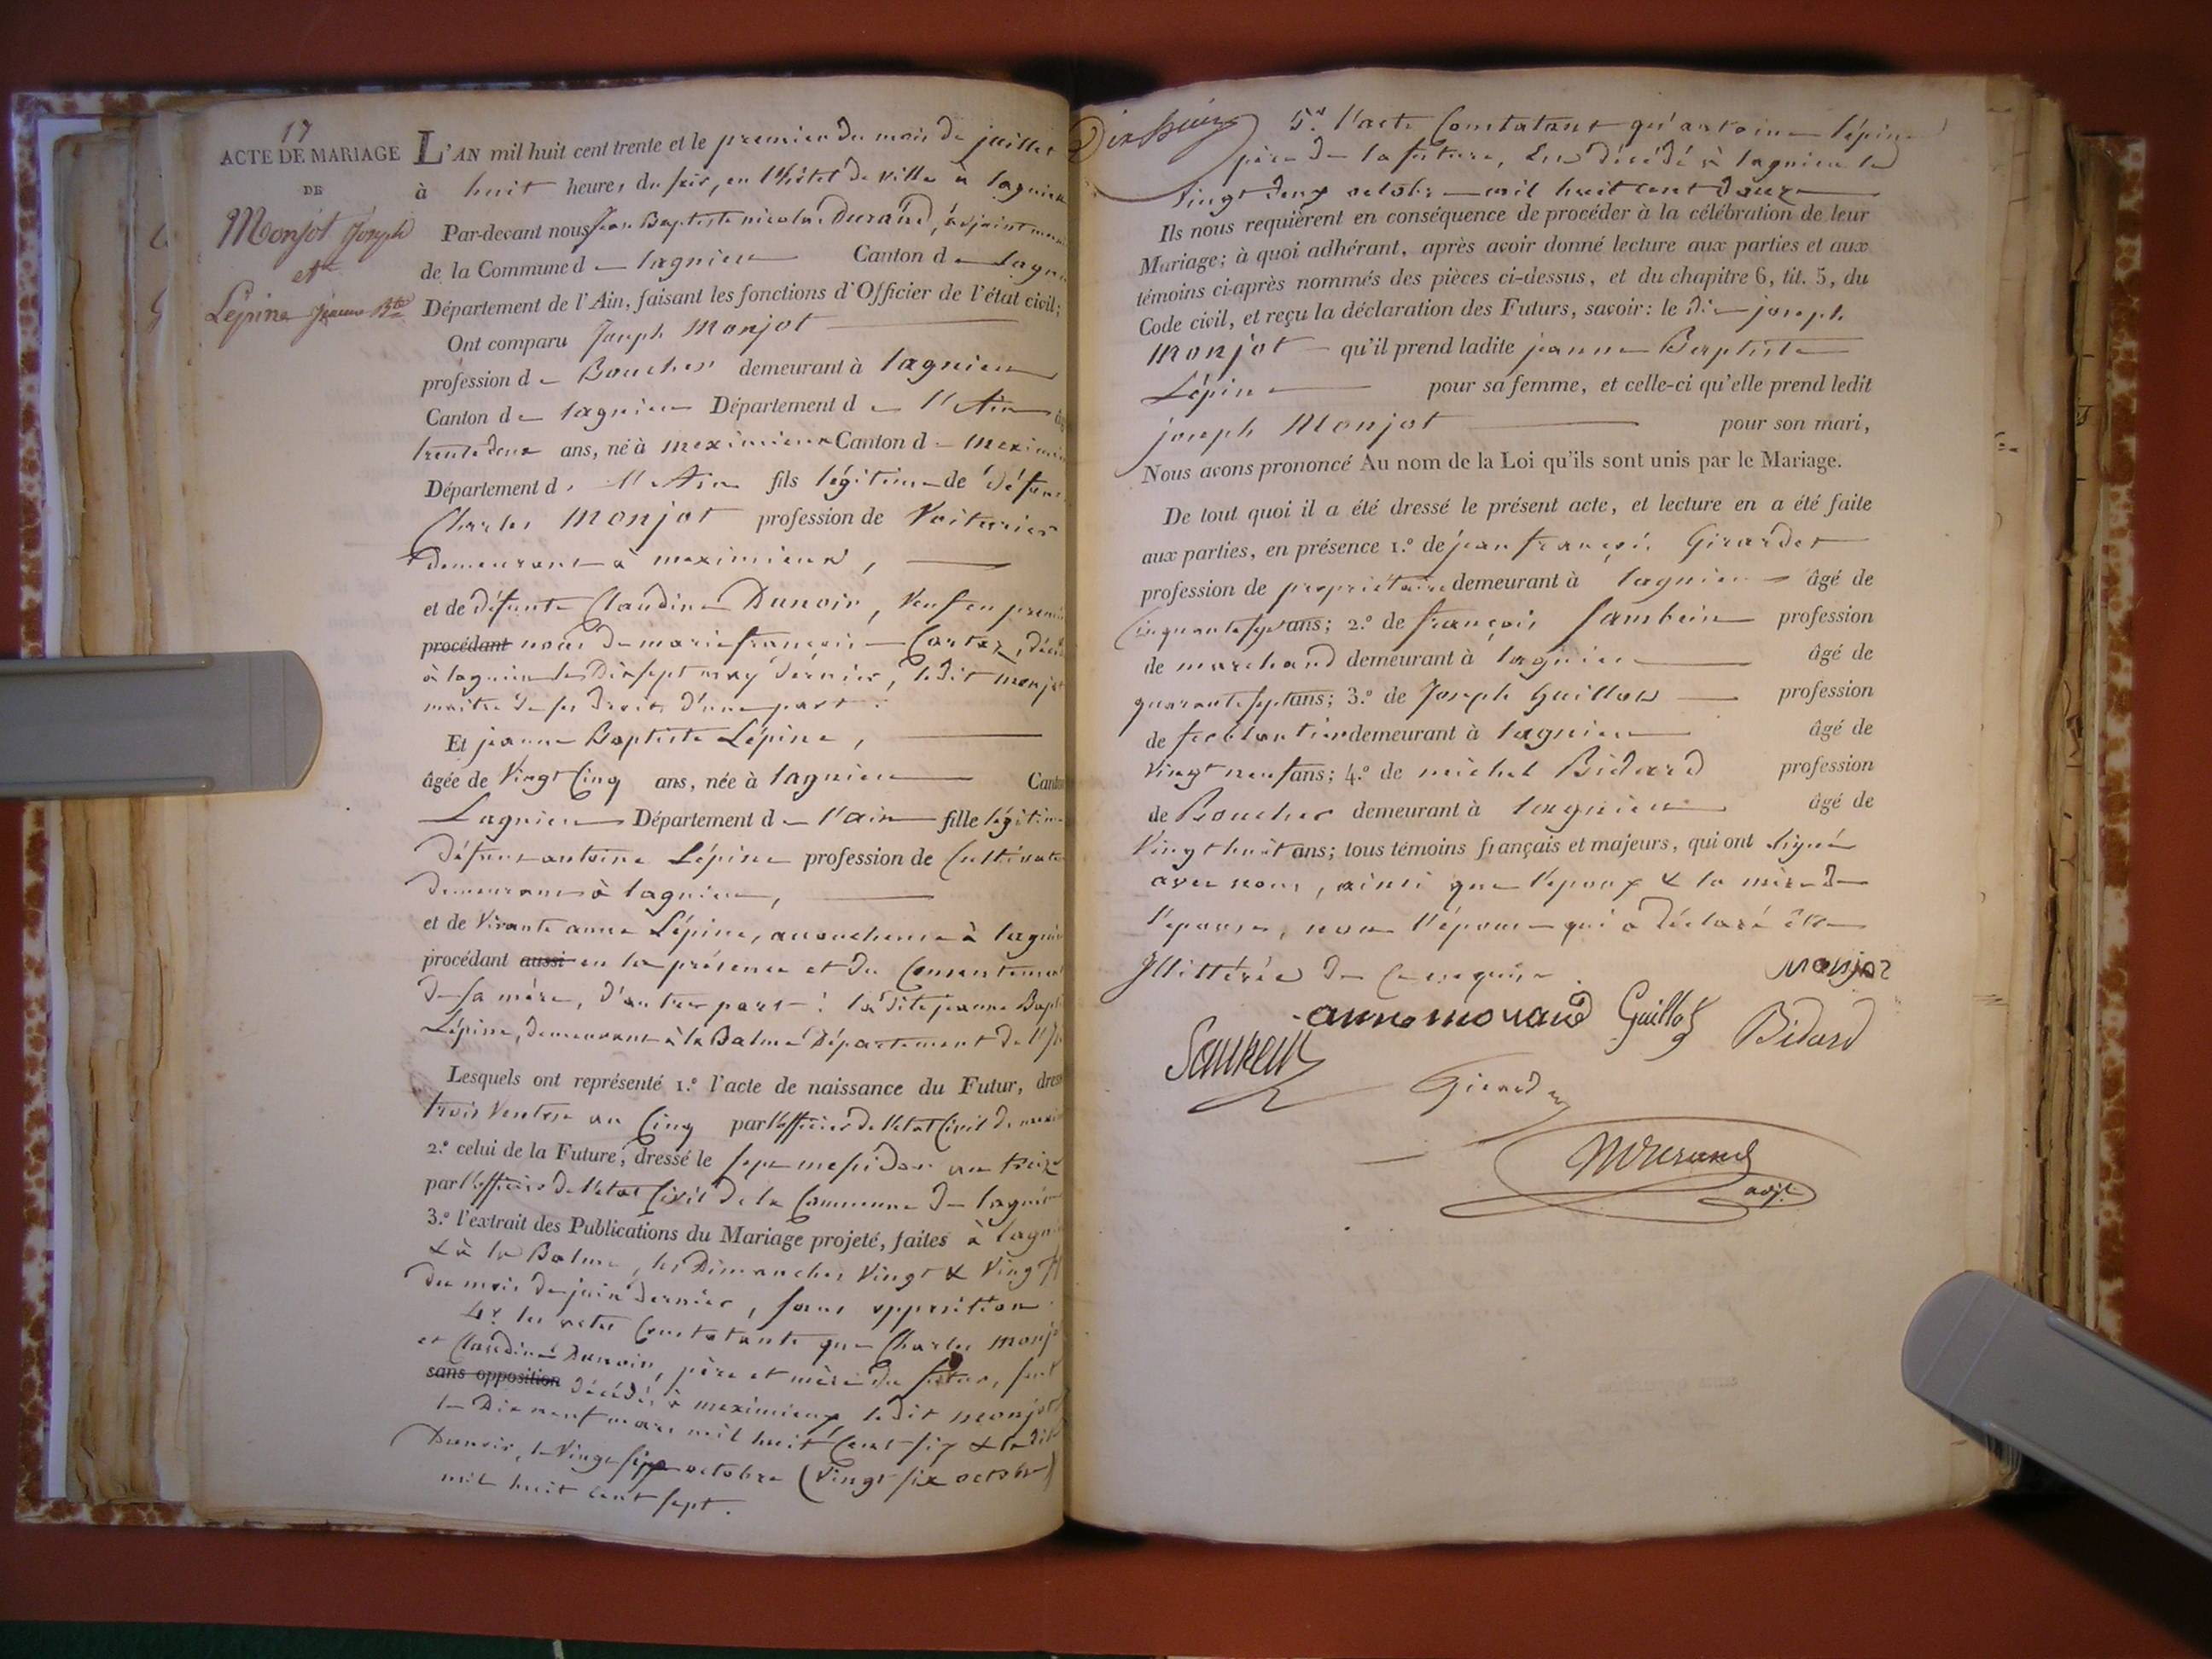 17
ACTE DE MARIAGE
DE
Monjot Joseph
et
Lépine Jeanne Bte
L'AN mil huit cent trente et le premier du mois de juillet
à huit heures du soir, en l'hôtel de ville à lagnieu
Par-devant nous Jean Baptiste nicolas Durand, adjoint
de la Commune d lagnieu Canton d Lagn
Département de l'Ain, faisant les fonctions d'Officier de l'état civil;
Ont comparu Joseph Monjot
profession de Boucher demeurant à lagnieu
Canton de lagnieu Département de l'Ain
trente deux ans, né à meximieux Canton de mexim
Département de l'Ain fils légitime de défun
Charles Monjot profession de Voiturier
demeurant à meximieux,
et de défunte Claudine Dunoir, Veuf en premi
procédant noces de marie françoise Cortaz, décé
à lagnieu le Dix sept may dernier, ledit monjot
maître de ses droits d'une part.
Et jeanne Baptiste Lépine,
âgée de Vingt Cinq ans, née à lagnieu Canton
Lagnieu Département de l'ain fille légitime
défunt antoine Lépine profession de Cultivate
demeurant à lagnieu,
et de Vivante anne Lépine, accoucheuse à lagni
procédant aussi en la présence et du Consentement
de sa mère, d'autre part. ladite jeanne Bapt
Lépine, demeurant à la Balme Département de l'Is
Lesquels ont représenté 1.º l'acte de naissance du Futur, dress
trois Ventose an Cinq par l'officier de l'etat Civil de mexi
2.º celui de la Future, dressé le sept messidor an treize
par l'officier de l'etat Civil de la Commune de lagnieu
3.º l'extrait des Publications du Mariage projeté, faites à lagn
& à la Balme, les Dimanches Vingt & Vingt
du mois de juin dernier, sans opposition.
4.º les actes Constatants que Charles monj
et Claudine Dunoir, père et mère du futur, sont
sans opposition décédés à meximieux, ledit monjot
le Dix neuf mars mil huit Cent six & ladite
Dunoir, le Vingt six octobre (Vingt six octobre)
mil huit cent sept.
Dix huit
5.º l'acte Constatant qu'antoine lépine
père de la future, est décédé à lagnieu le
Vingt deux octobre mil huit cent douze
Ils nous requièrent en conséquence de procéder à la célébration de leur
Mariage; à quoi adhérant, après avoir donné lecture aux parties et aux
témoins ci-après nommés des pièces ci-dessus, et du chapitre 6, tit. 5, du
Code civil, et reçu la déclaration des Futurs, savoir: le dit joseph
Monjot qu'il prend ladite jeanne Baptiste
Lépine pour sa femme, et celle-ci qu'elle prend ledit
joseph Monjot pour son mari,
Nous avons prononcé Au nom de la Loi qu'ils sont unis par le Mariage.
De tout quoi il a été dressé le présent acte, et lecture en a été faite
aux parties, en présence 1.º de jean françois Girardet
profession de propriétaire demeurant à lagnieu âgé de
Cinquante sept ans; 2.º de françois profession
de marchand demeurant à lagnieu âgé de
quarante sept ans; 3.º de Joseph Guillot profession
de ferblantier demeurant à lagnieu âgé de
Vingt neuf ans; 4.º de michel Bidard profession
de Boucher demeurant à lagnieu âgé de
Vingt huit ans; tous témoins français et majeurs, qui ont signé
avec nous, ainsi que l'epoux & la mère de
l'epouse, non l'épouse qui a déclaré être
Illittérée de Ce requise.
Monjot
anne moraud Guillot Bidard
Girardet
Durand
adjt